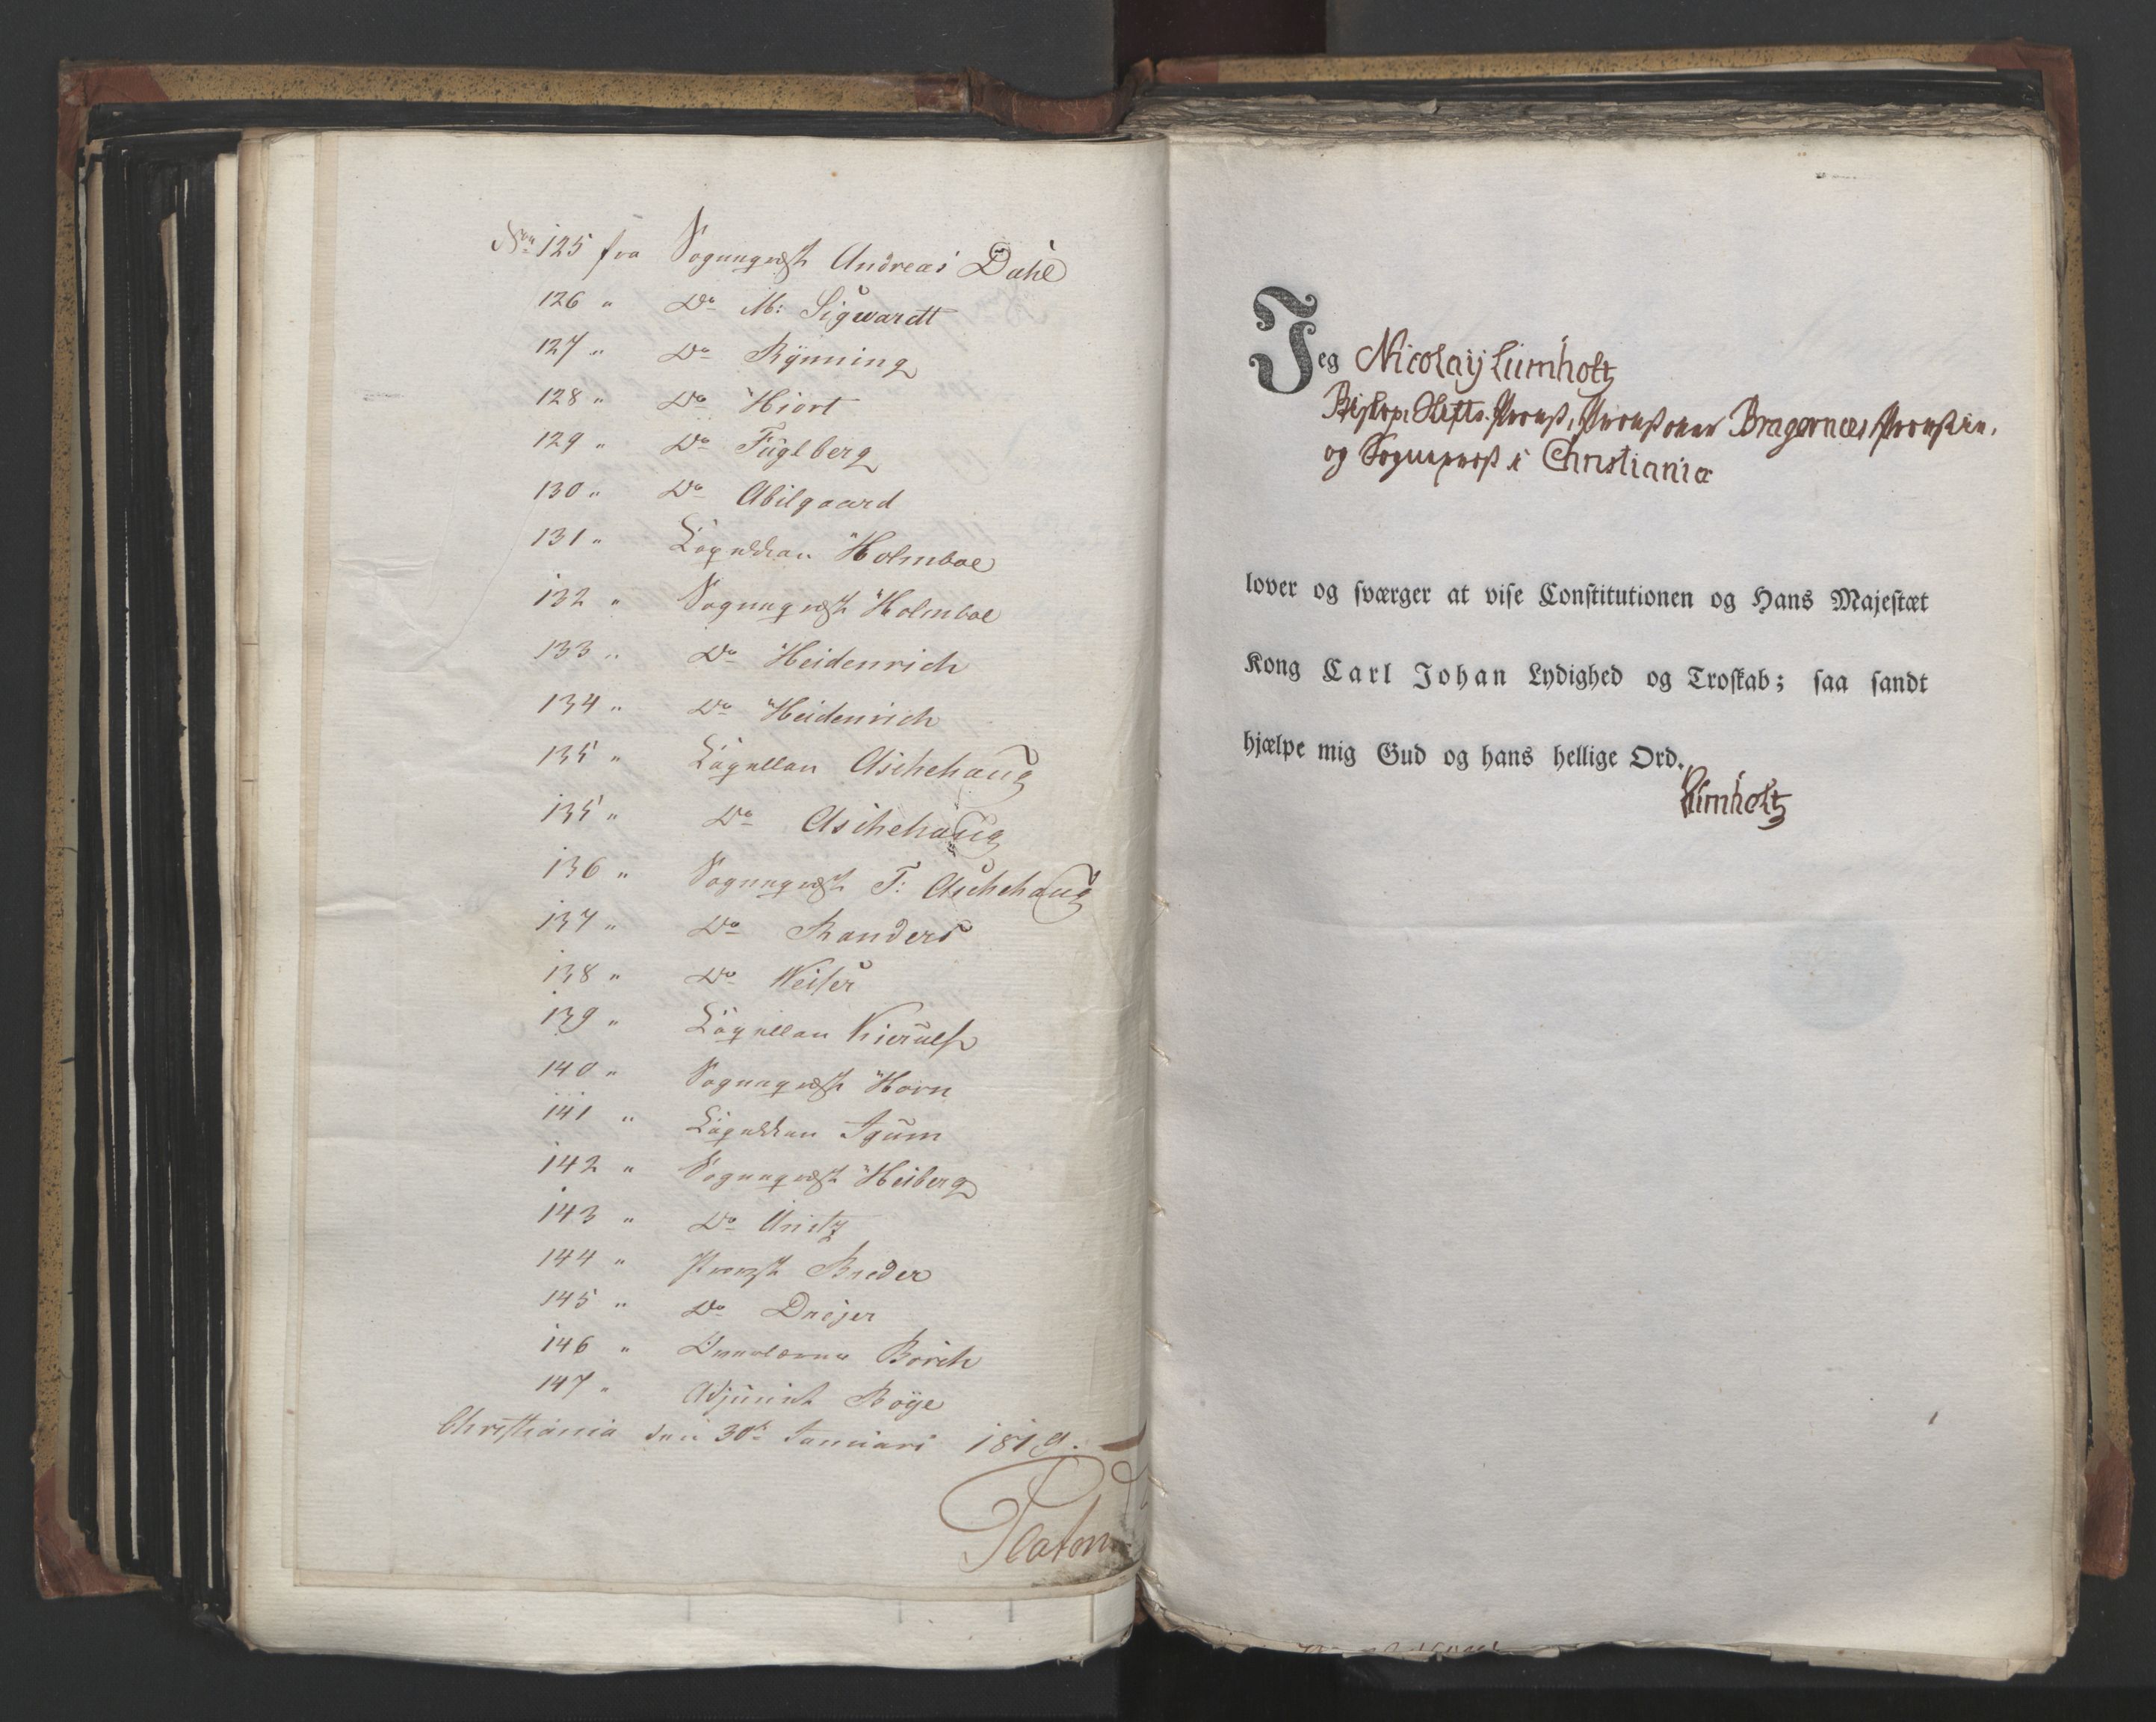 No 125 fra Sogneprest Andreas Dahl
126 " Do M: Sigwardt
127 " Do Rynning
128 " Do Hiort
129 " Do Fuglberg
130 " Do Abilgaard
131 " Capellan Holmboe
132 " Sogneprest Holmboe
133 " Do Heidenrich
134 " Do Heidenrich
135 " Capellan Aschehaug
135 " Do Aschehaug
136 " Sogneprest T: Aschehaug
137 " Do Randers
138 " Do
139 " Capellan Kierulf
140 " Sogneprest Horn
141 " Capellan
142 " Sogneprest Heiberg
143 " Do
144 " Provst Breder
145 " Do Drejer
146 " Borch
147 " Adjunct Böye
Christiania den 30te Januari 1819.
Jeg Nicolay Lumholtz
Biskop, Stifts Provst, Provst over Bragernæs Provstie,
og Sogneprest i Christiania
lover og sværger at vise Constitutionen og Hans Majestæt
Kong Carl Johan Lydighed og Troskab; saa sandt
hjælpe mig Gud og hans hellige Ord.
Lumholtz